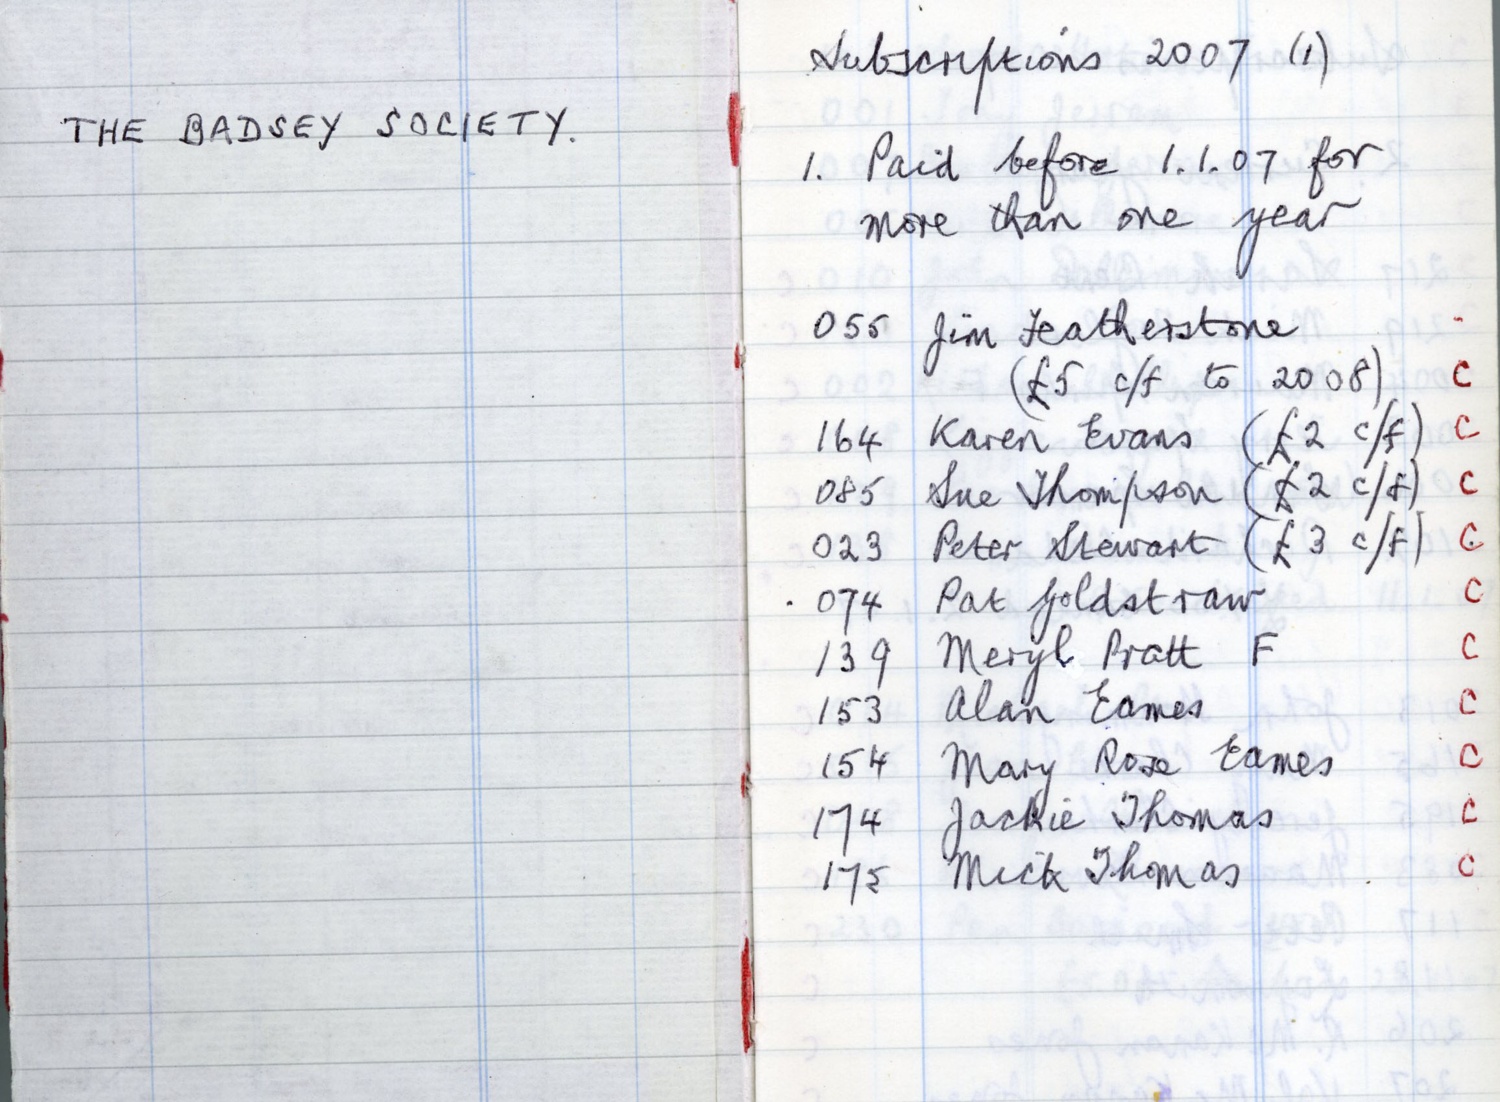 THE BADSEY SOCIETY.
Subscriptions 2007 (1)
1. Paid before 1.1.07 for
more than one year
055 Jim Featherstone
(£5 c/f to 2008) C
164 Karen Evans (£2 c/f) C
085 Sue Thompson (£2 c/f) C
023 Peter Stewart (£3 c/f) C
074 Pat Goldstraw C
139 Meryl Pratt F C
153 Alan Eames C
154 Mary Rose Eames C
174 Jackie Thomas C
175 Mick Thomas C